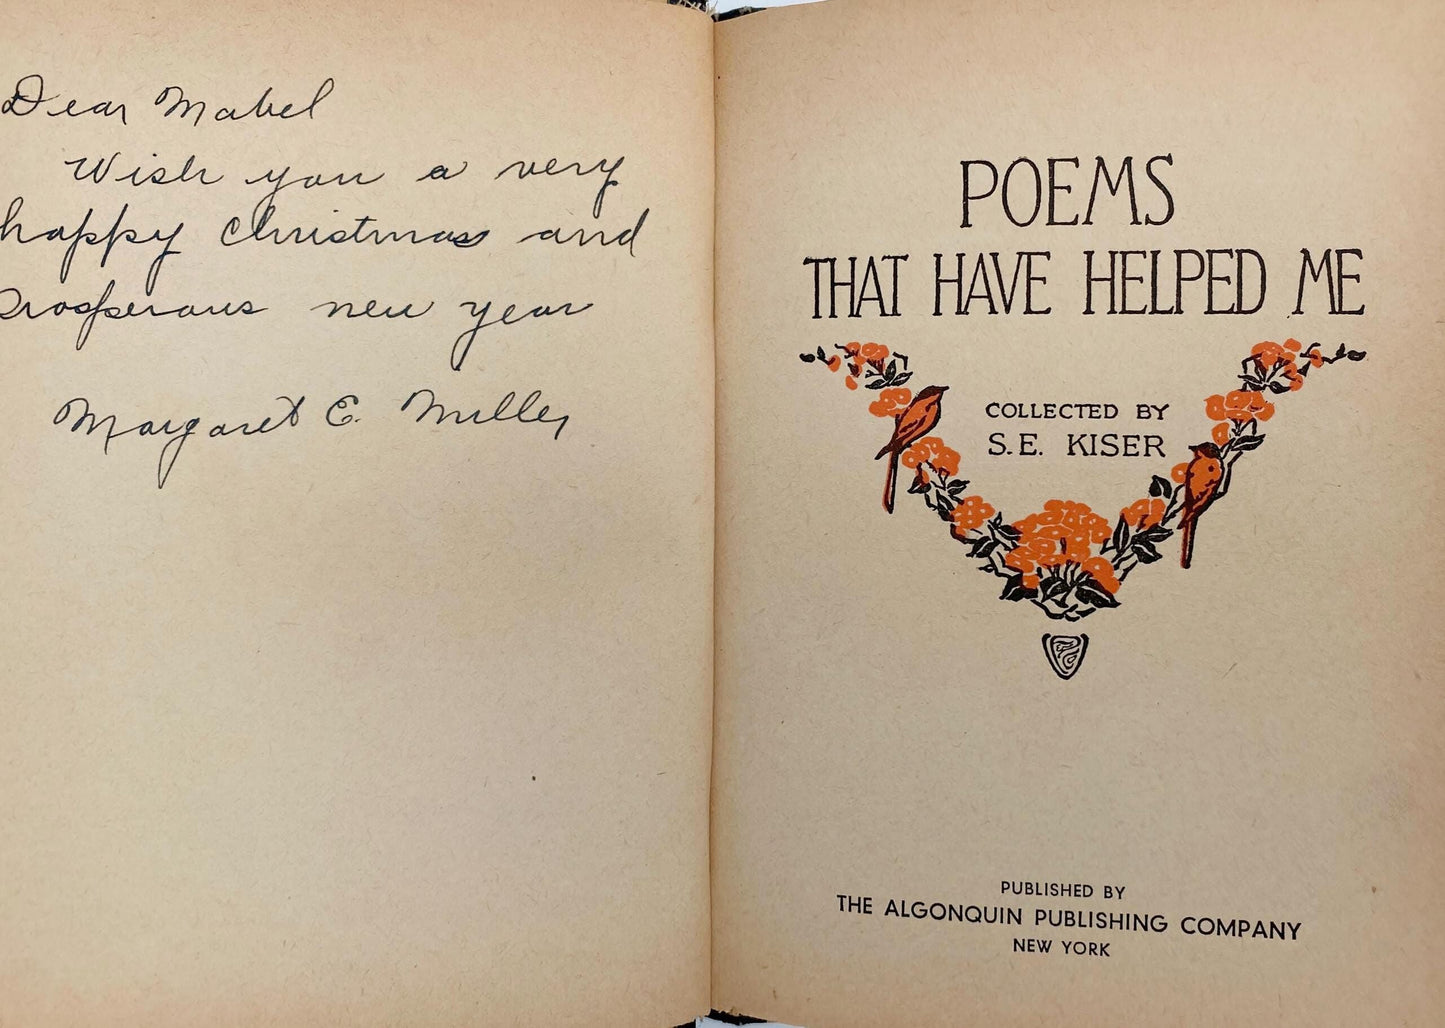 Dear Mabel
Wish you a very
happy Christmas and
Prosperous new year
Margaret E. Miller
POEMS
THAT HAVE HELPED ME
COLLECTED BY
S. E. KISER
PUBLISHED BY
THE ALGONQUIN PUBLISHING COMPANY
NEW YORK